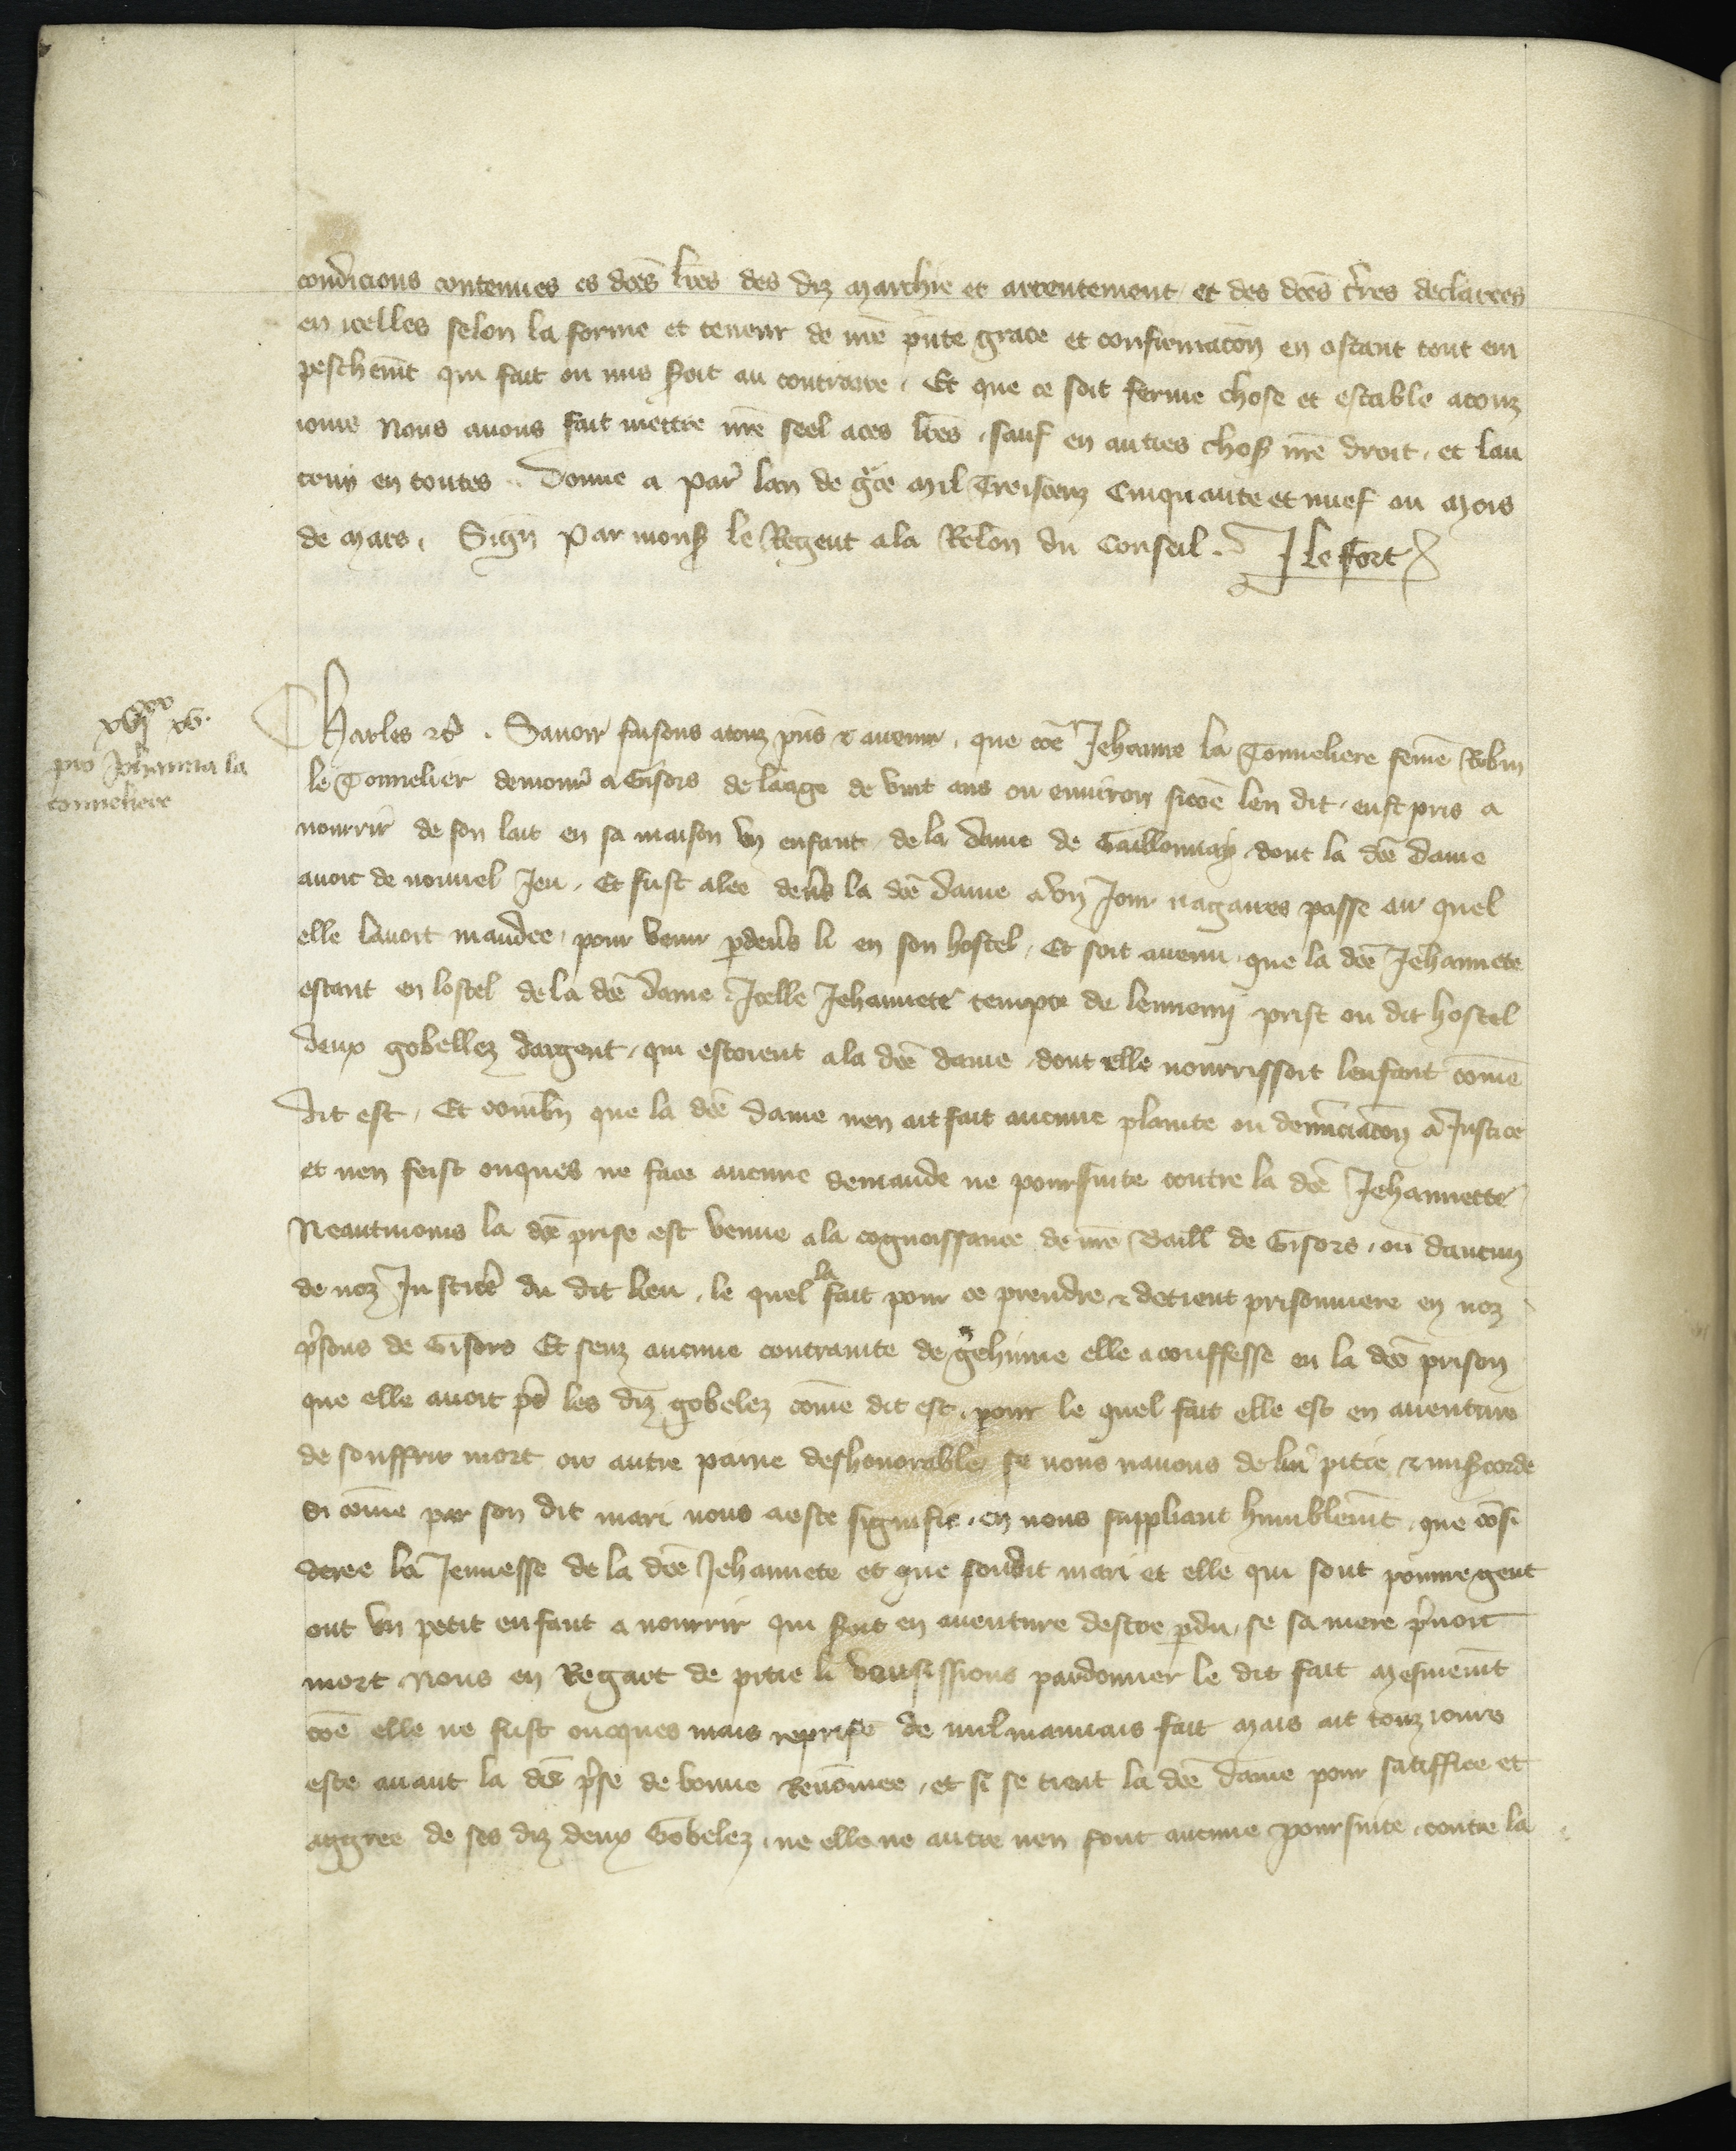 condicions contenues es dc̄es lr̄es des diz marchie et attentement et des dc̄es tr̄res declarees
en icelles selon la forme et teneur de nr̄e pn̄te grace et confirmacōn en ostant tout em
peschemēt qui fait ou mis soit au contraire . Et que ce soit ferme chose et estable a touz
iours Nous auons fait mettre nr̄e seel a ces lr̄es . sauf en autres chos nr̄e droit . et lau
truy en toutes . Donne a par̄ lan de gr̄ce mil Treiscenz Cinquante et nuef ou mois
de mars . Sign̄ Par mons le Regent a la Relōn du Conseil . J le ffort
xvij xv.
pro Johanna la
tonneliere
Charles etc̄ . Sauoir faisons a touz pn̄s et auenir . que cōe Jehanne la Tonneliere femē Robin
le Tonnelier demour̄ a Gisors de laage de vint ans ou enuiron sicōe len dit . eust pris a
nourrir de son lait en sa maison vn enfant de la dame de Gaillonnay . dont la dc̄e dame
auoit de nouuel Jeu . Et fust alee deūs la dc̄e dame a vn Jour nagaires passe au quel
elle lauoit mandee . pour venir pdeūs li en son hostel . Et soit auenu . que la dc̄e Jehannete
estant en lostel de la dc̄e dame Jcelle Jehannete temptee de lennemj prist ou dit hostel
deux gobellez dargent . qui estoient a la dc̄e dame . dont elle nourrissoit lenfant cōme
dit est . Et combn̄ que la dc̄e dame nen ait fait aucune plainte ou denūciacōn a Justice
et nen feist onques ne face aucune demande ne poursuite contre la dc̄e Jehannette
Neantmoins la dc̄e prise est venue a la cognoissance de nr̄e Baill de Gisors . ou daucun
de noz Justiciēr du dit lieu . le quel la fait pour ce prendre et detient prisonniere en noz
p̄sons de Gisors Et senz aucune contrainte de gehinne elle a confesse en la dc̄e prison
que elle auoit p̄s les diz gobelez cōme dit est . pour le quel fait elle est en auenture
de souffrir mort ou autre paine deshonorable se nous nauons de lui pitie et misicorde
si cōme par son dit mari nous a este signifie . en nous suppliant humblemēt . que cōsi
deree la Jennesse de la dc̄e Jehannete et que sondit mari et elle qui sont poure gent
ont vn petit enfant a nourrir qui soit en auenture destre pdu . se sa mere p̄noit
mort Nous en Regart de pitie li vousissions pardonner le dit fait mesmemēt
cōe elle ne fust oncques mais reprise de nul mauuais fait mais ait touz iours
este auant la dc̄e p̄se de bonne Renōmee . et si se tient la dc̄e Dame pour satiffiee et
aggree de ses diz deux Gobelez . ne elle ne autre nen font aucune poursuite . contre la